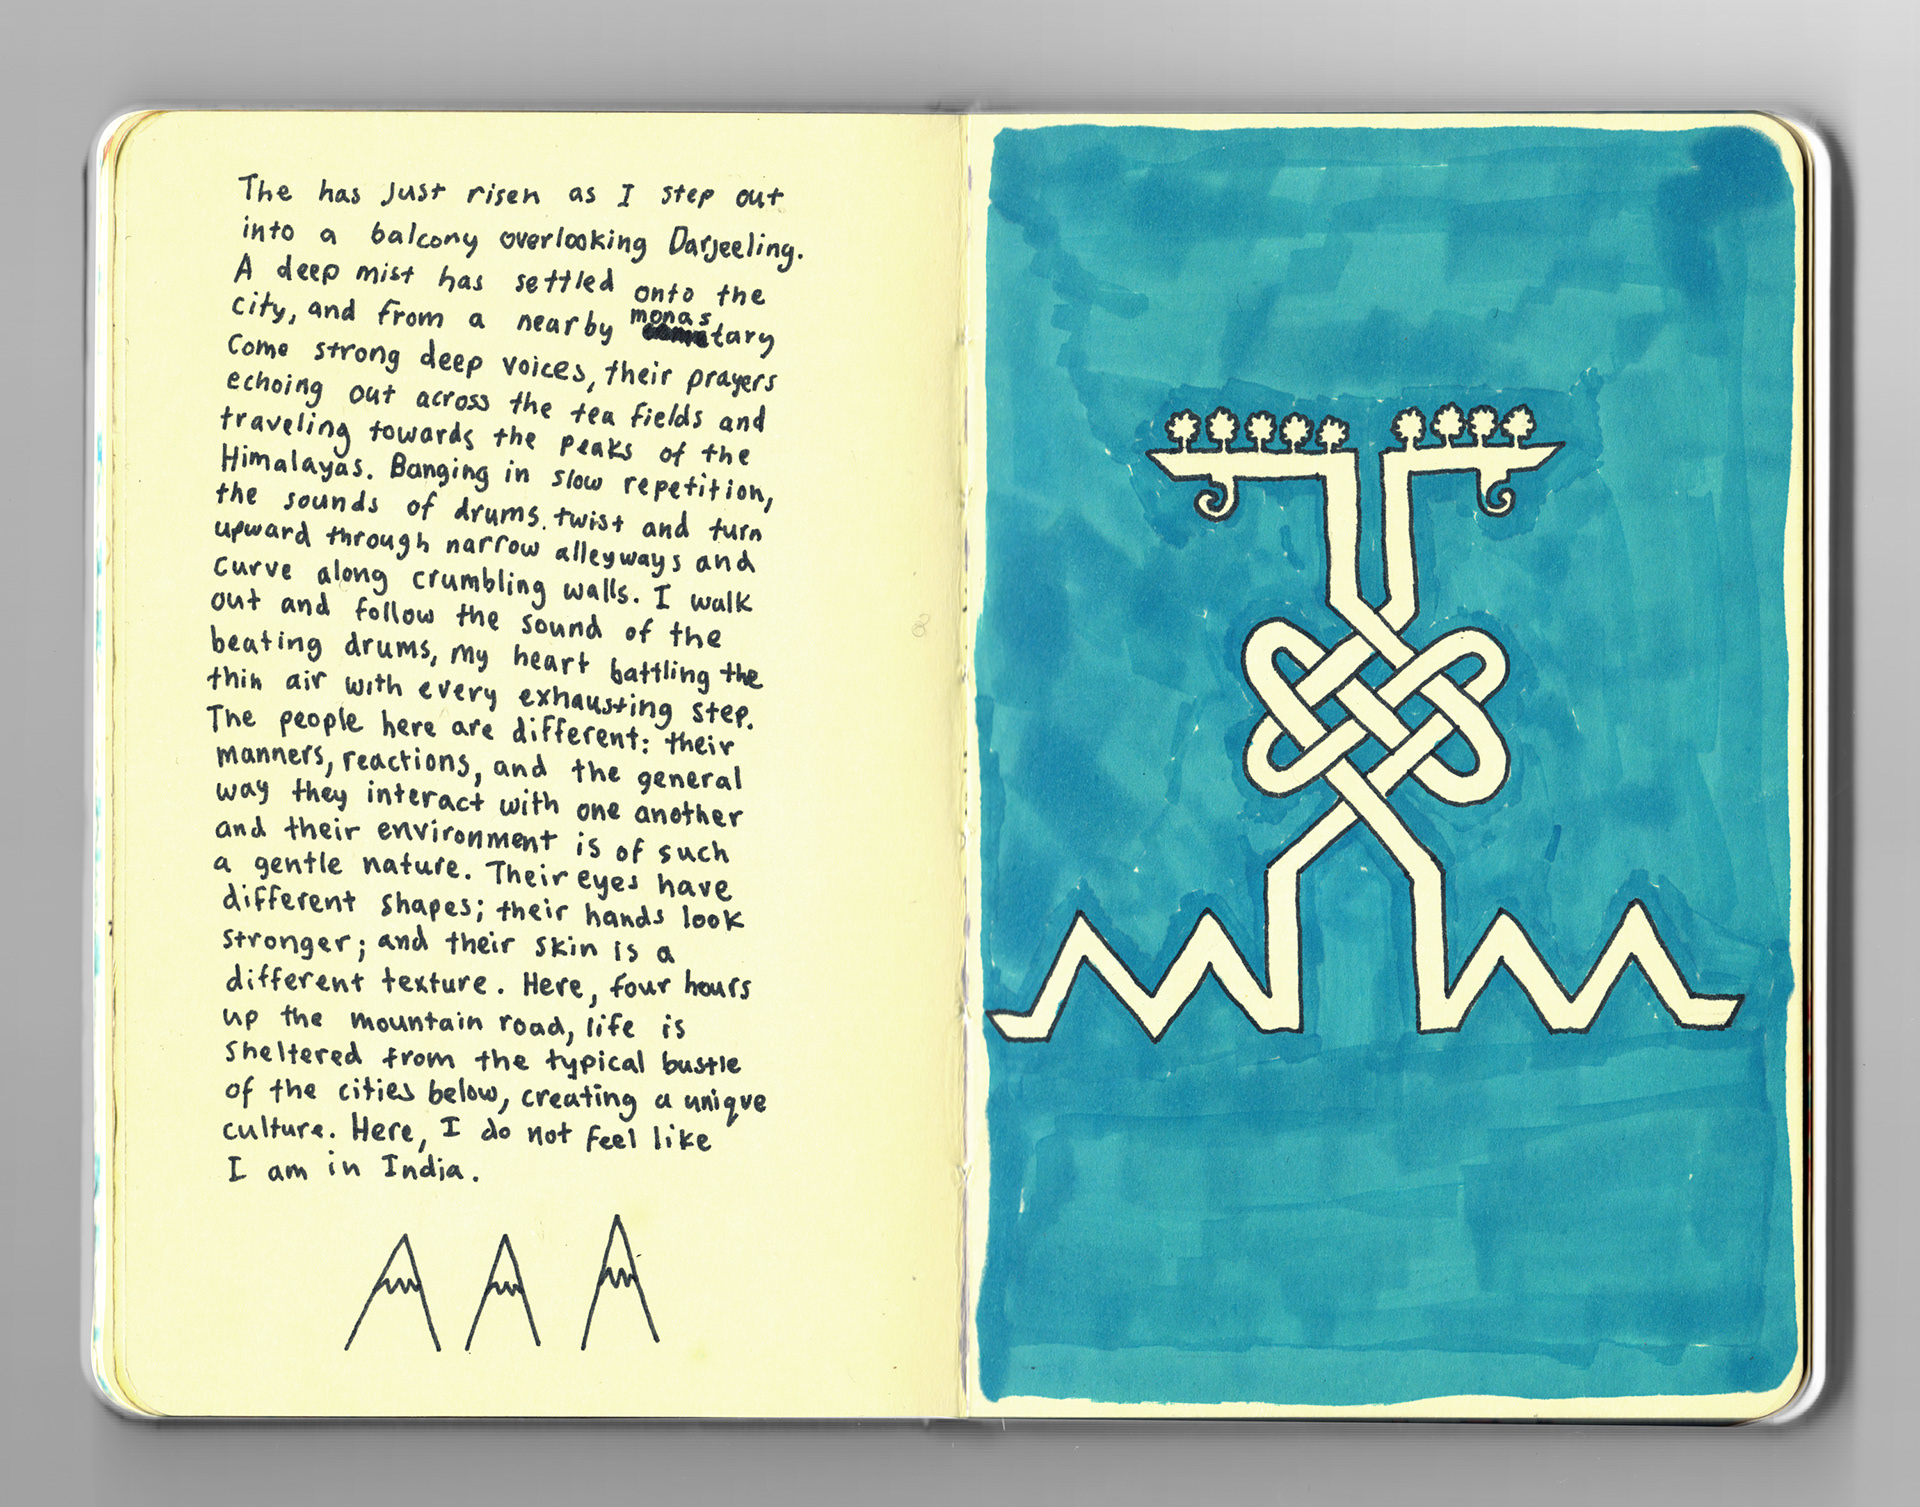 The has just risen as I step out
into a balcony overlooking Darjeeling.
A deep mist has settled onto the
city, and from a nearby monastary
come strong deep voices, their prayers
echoing out across the tea fields and
traveling towards the peaks of the
Himalayas. Banging in slow repetition,
the sounds of drums twist and turn
upward through narrow alleyways and
curve along crumbling walls. I walk
out and follow the sound of the
beating drums, my heart battling the
thin air with every exhausting step.
The people here are different: their
manners, reactions, and the general
way they interact with one another
and their environment is of such
a gentle nature. Their eyes have
different shapes; their hands look
stronger; and their skin is a
different texture. Here, four hours
up the mountain road, life is
sheltered from the typical bustle
of the cities below, creating a unique
culture. Here, I do not feel like
I am in India.